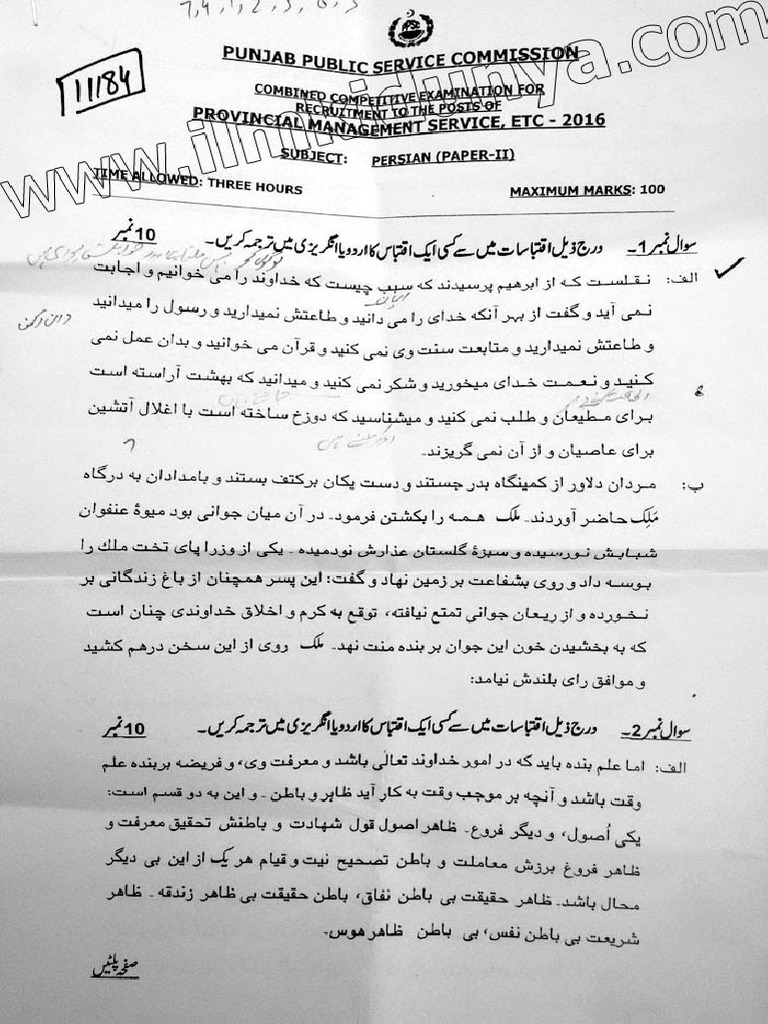 11184
PUNJAB PUBLIC SERVICE COMMISSION
COMBINED COMPETITIVE EXAMINATION FOR
RECRUITMENT TO THE POSTS OF
PROVINCIAL MANAGEMENT SERVICE, ETC - 2016
SUBJECT: PERSIAN (PAPER-II)
TIME ALLOWED: THREE HOURS MAXIMUM MARKS: 100
www.ilmkidunya.com
سوال نمبر 1۔ درج ذیل اقتباسات میں سے کسی ایک اقتباس کا اردو یا انگریزی میں ترجمہ کریں۔ 10 نمبر
الف: نقلست که از ابرهیم پرسیدند که سبب چیست که خداوند را می خوانیم و اجابت
نمی آید و گفت از بهر آنکه خدای را می دانید و طاعتش نمیدارید و رسول را میدانید
و طاعتش نمیدارید و متابعت سنت وی نمی کنید و قرآن می خوانید و بدان عمل نمی
کنید و نعمت خدای میخورید و شکر نمی کنید و میدانید که بهشت آراسته است
برای مطیعان و طلب نمی کنید و میشناسید که دوزخ ساخته است با اغلال آتشین
برای عاصیان و از آن نمی گریزند۔
ب: مردان دلاور از کمینگاه بدر جستند و دست یکان برکتف بستند و بامدادان به درگاه
مَلِک حاضر آوردند۔ ملک همه را بکشتن فرمود۔ در آن میان جوانی بود میوۀ عنفوان
شبابش نورسیده و سبزۀ گلستان عذارش نودمیده ۔ یکی از وزرا پای تخت ملك را
بوسه داد و روی بشفاعت بر زمین نهاد و گفت: این پسر همچنان از باغ زندگانی بر
نخورده و از ریعان جوانی تمتع نیافته، توقع به کرم و اخلاق خداوندی چنان است
که به بخشیدن خون این جوان بر بنده منت نهد۔ ملک روی از این سخن درهم کشید
و موافق رای بلندش نیامد:
سوال نمبر 2۔ درج ذیل اقتباسات میں سے کسی ایک اقتباس کا اردو یا انگریزی میں ترجمہ کریں۔ 10 نمبر
الف: اما علم بنده باید که در امور خداوند تعالٰی باشد و معرفت وی، و فریضه بر بنده علم
وقت باشد و آنچه بر موجب وقت به کار آید ظاہر و باطن ۔ و این به دو قسم است:
یکی اُصول، و دیگر فروع۔ ظاهر اصول قول شهادت و باطنش تحقیق معرفت و
ظاهر فروغ برزش معاملت و باطن تصحیح نیت و قیام هر یک از این بی دیگر
محال باشد۔ ظاهر حقیقت بی باطن نفاق، باطن حقیقت بی ظاهر زندقه ۔ ظاهر
شریعت بی باطن نفس، بی باطن ظاهر هوس۔
صفحہ پلٹیں